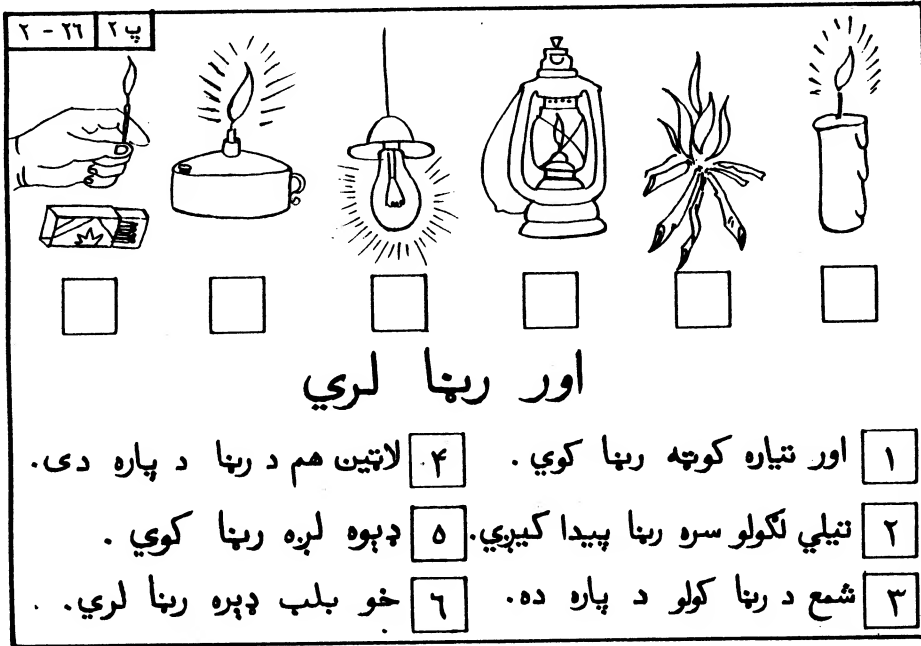 پ ۲ ۲٦ - ۲
اور رڼا لري
۱ اور تیاره کوټه رڼا کوي .
۲ تیلي لګولو سره رڼا پیدا کیږي.
۳ شمع د رڼا کولو د پاره ده.
۴ لاټین هم د رڼا د پاره دی.
۵ ډېوه لږه رڼا کوي .
٦ خو بلب ډېره رڼا لري.